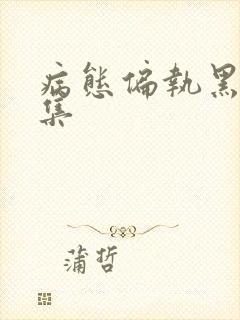 病態偏執黑
集
蒲哲